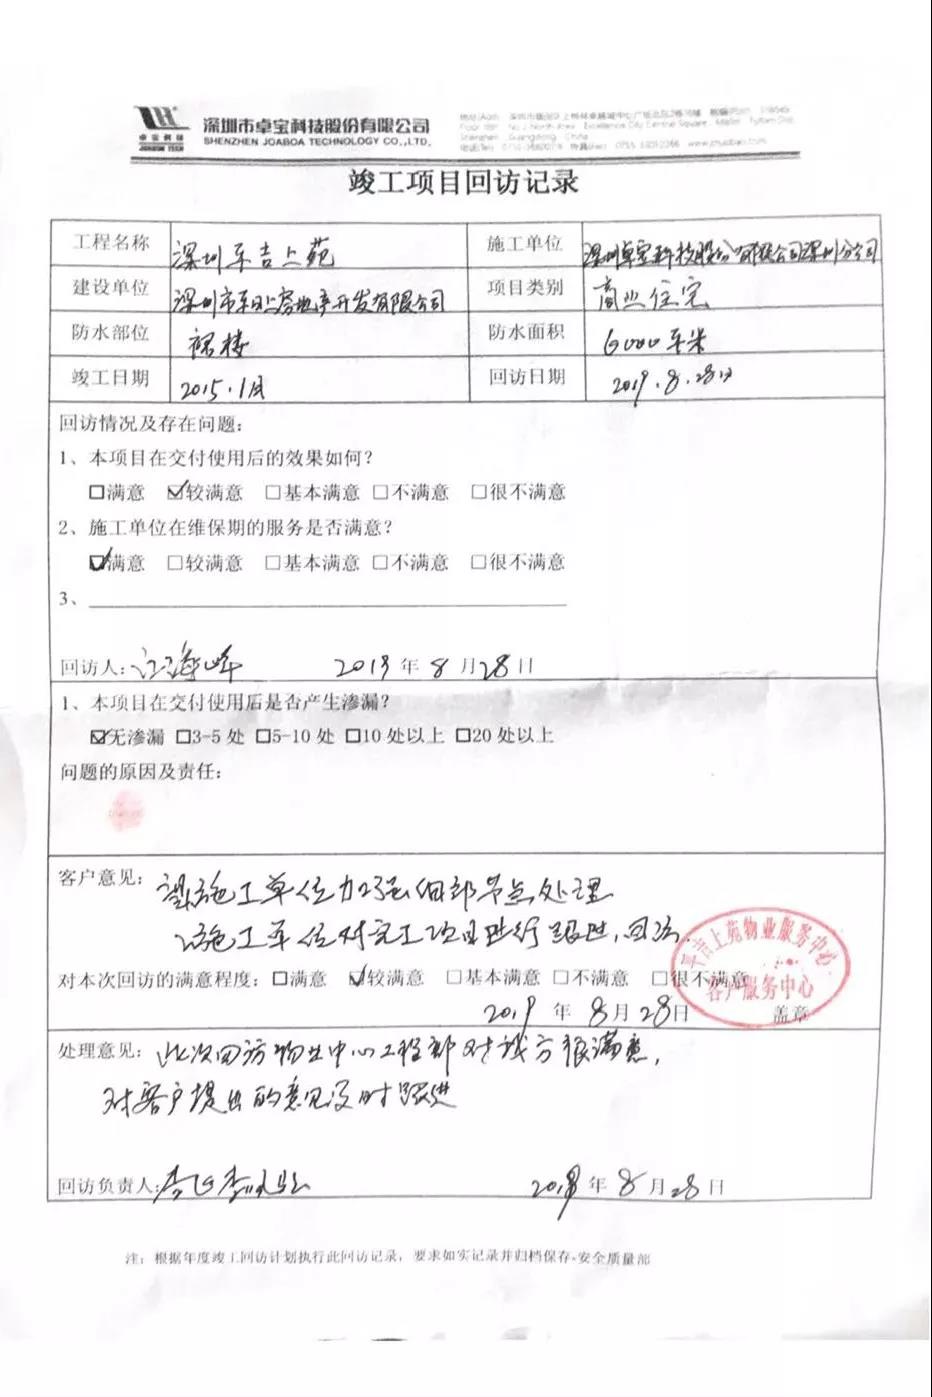 卓宝科技
JOABOA TECH
深圳市卓宝科技股份有限公司
SHENZHEN JOABOA TECHNOLOGY CO.,LTD.
竣工项目回访记录
工程名称 深圳东吉上苑 施工单位 深圳卓宝科技股份有限公司深圳分公司
建设单位 深圳市东旭上房地产开发有限公司 项目类别 商业住宅
防水部位 裙楼 防水面积 6000平米
竣工日期 2015.1月 回访日期 2019.8.28日
回访情况及存在问题:
1、本项目在交付使用后的效果如何?
□满意 ☑较满意 □基本满意 □不满意 □很不满意
2、施工单位在维保期的服务是否满意?
☑满意 □较满意 □基本满意 □不满意 □很不满意
3、
回访人: 江海峰 2019年8月28日
1、本项目在交付使用后是否产生渗漏?
☑无渗漏 □3-5处 □5-10处 □10处以上 □20处以上
问题的原因及责任:
客户意见: 望施工单位加强细部节点处理
施工单位对完工项目进行跟进,回访.
对本次回访的满意程度: □满意 ☑较满意 □基本满意 □不满意 □很不满意
吉上苑物业服务中心
客户服务中心
2019年8月28日 盖章
处理意见: 此次回访物业中心工程部对我方很满意,
对客户提出的意见及时跟进
回访负责人: 2019年8月28日
注: 根据年度竣工回访计划执行此回访记录, 要求如实记录并归档保存-安全质量部